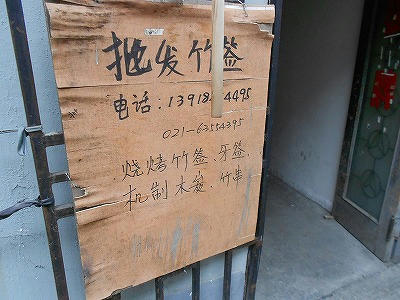 批发竹签
电话:13918 4495
021-63554395
烧烤竹签.牙签.
机制木炭.竹串